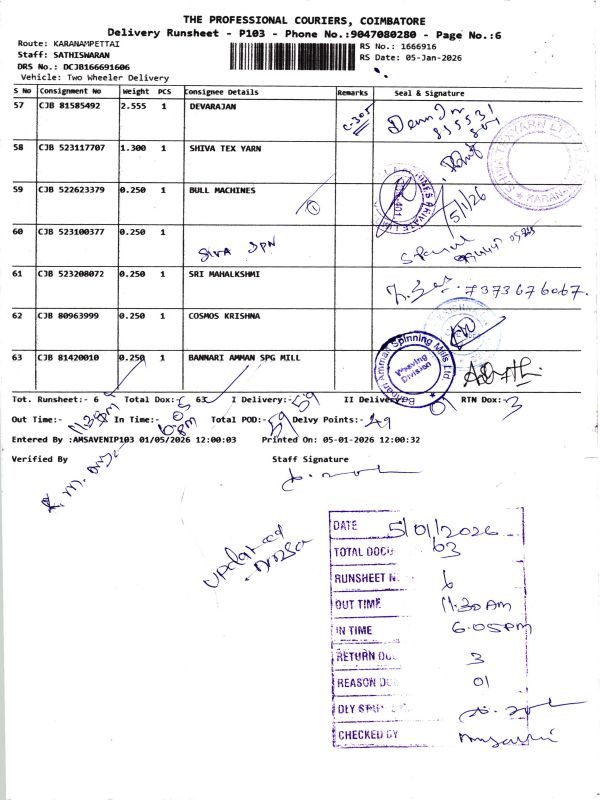 THE PROFESSIONAL COURIERS, COIMBATORE
Delivery Runsheet - P103 - Phone No.:9047080280 - Page No.:6
Route: KARANAMPETTAI
Staff: SATHISWARAN
DRS No.: DCJB166691606
Vehicle: Two Wheeler Delivery
RS No.: 1666916
RS Date: 05-Jan-2026
S No Consignment No Weight PCS Consignee Details Remarks Seal & Signature
57 CJB 81585492 2.555 1 DEVARAJAN C-305
58 CJB 523117707 1.300 1 SHIVA TEX YARN
59 CJB 522623379 0.250 1 BULL MACHINES 1 5/1/26
60 CJB 523100377 0.250 1
SIVA SPN
61 CJB 523208072 0.250 1 SRI MAHALKSHMI 7373676067.
62 CJB 80963999 0.250 1 COSMOS KRISHNA
63 CJB 81420010 0.250 1 BANNARI AMMAN SPG MILL
Bannari Amman Spinning Mills Ltd.
Weaving Division
Tot. Runsheet:- 6 Total Dox:- 63 I Delivery:- 59 II Delivery:- 01 RTN Dox:- 3
Out Time:- 11:30 Am In Time:- 6.05 pm Total POD:- 59 Delvy Points:- 49
Entered By :AMSAVENIP103 01/05/2026 12:00:03 Printed On: 05-01-2026 12:00:32
Verified By Staff Signature
updated
DATE 5/01/2026
TOTAL DOCU 63
RUNSHEET N 6
OUT TIME 11.30 AM
IN TIME 6.05 PM
RETURN DOC 3
REASON DE 01
DLY STAFF
CHECKED BY